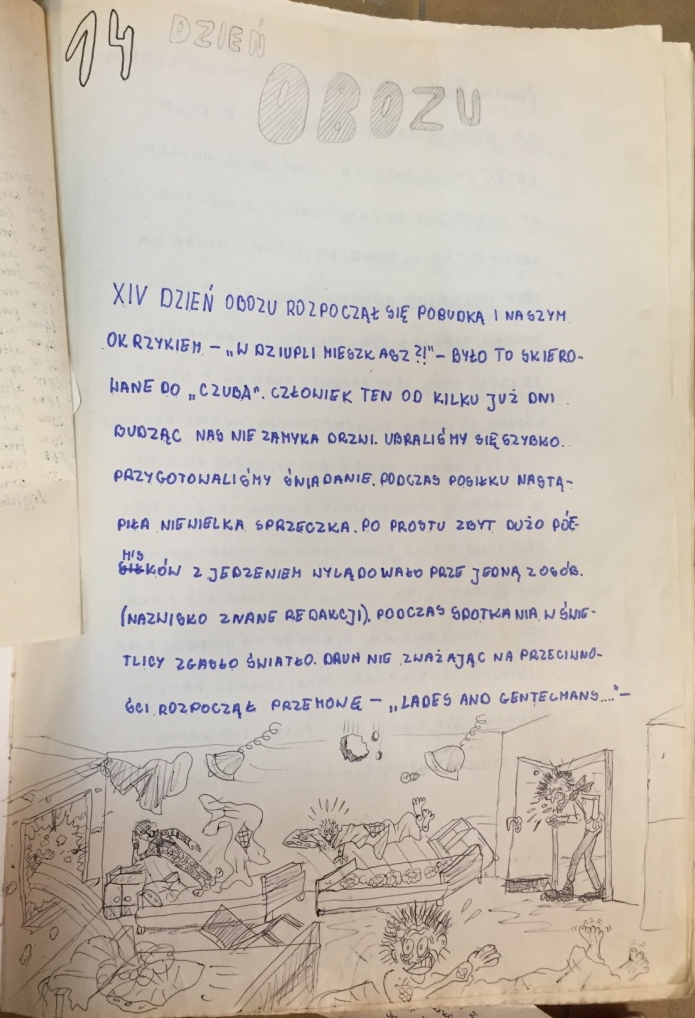 14 DZIEŃ
OBOZU
XIV DZIEŃ OBOZU ROZPOCZĄŁ SIĘ POBUDKĄ I NASZYM
OKRZYKIEM – „W DZIUPLI MIESZKASZ?!" – BYŁO TO SKIERO-
WANE DO „CZUBA". CZŁOWIEK TEN OD KILKU JUŻ DNI
BUDZĄC NAS NIE ZAMYKA DRZWI. UBRALIŚMY SIĘ SZYBKO.
PRZYGOTOWALIŚMY ŚNIADANIE. PODCZAS POSIŁKU NASTĄ-
PIŁA NIEWIELKA SPRZECZKA. PO PROSTU ZBYT DUŻO PÓŁ-
MISKÓW Z JEDZENIEM WYLĄDOWAŁO PRZE JEDNĄ Z OSÓB.
(NAZWISKO ZNANE REDAKCJI). PODCZAS SPOTKANIA W ŚWIE-
TLICY ZGASŁO ŚWIATŁO. DRUH NIE ZWAŻAJĄC NA PRZECIWNO-
ŚCI ROZPOCZĄŁ PRZEMOWĘ – „LADES AND GENTELMANS...." –